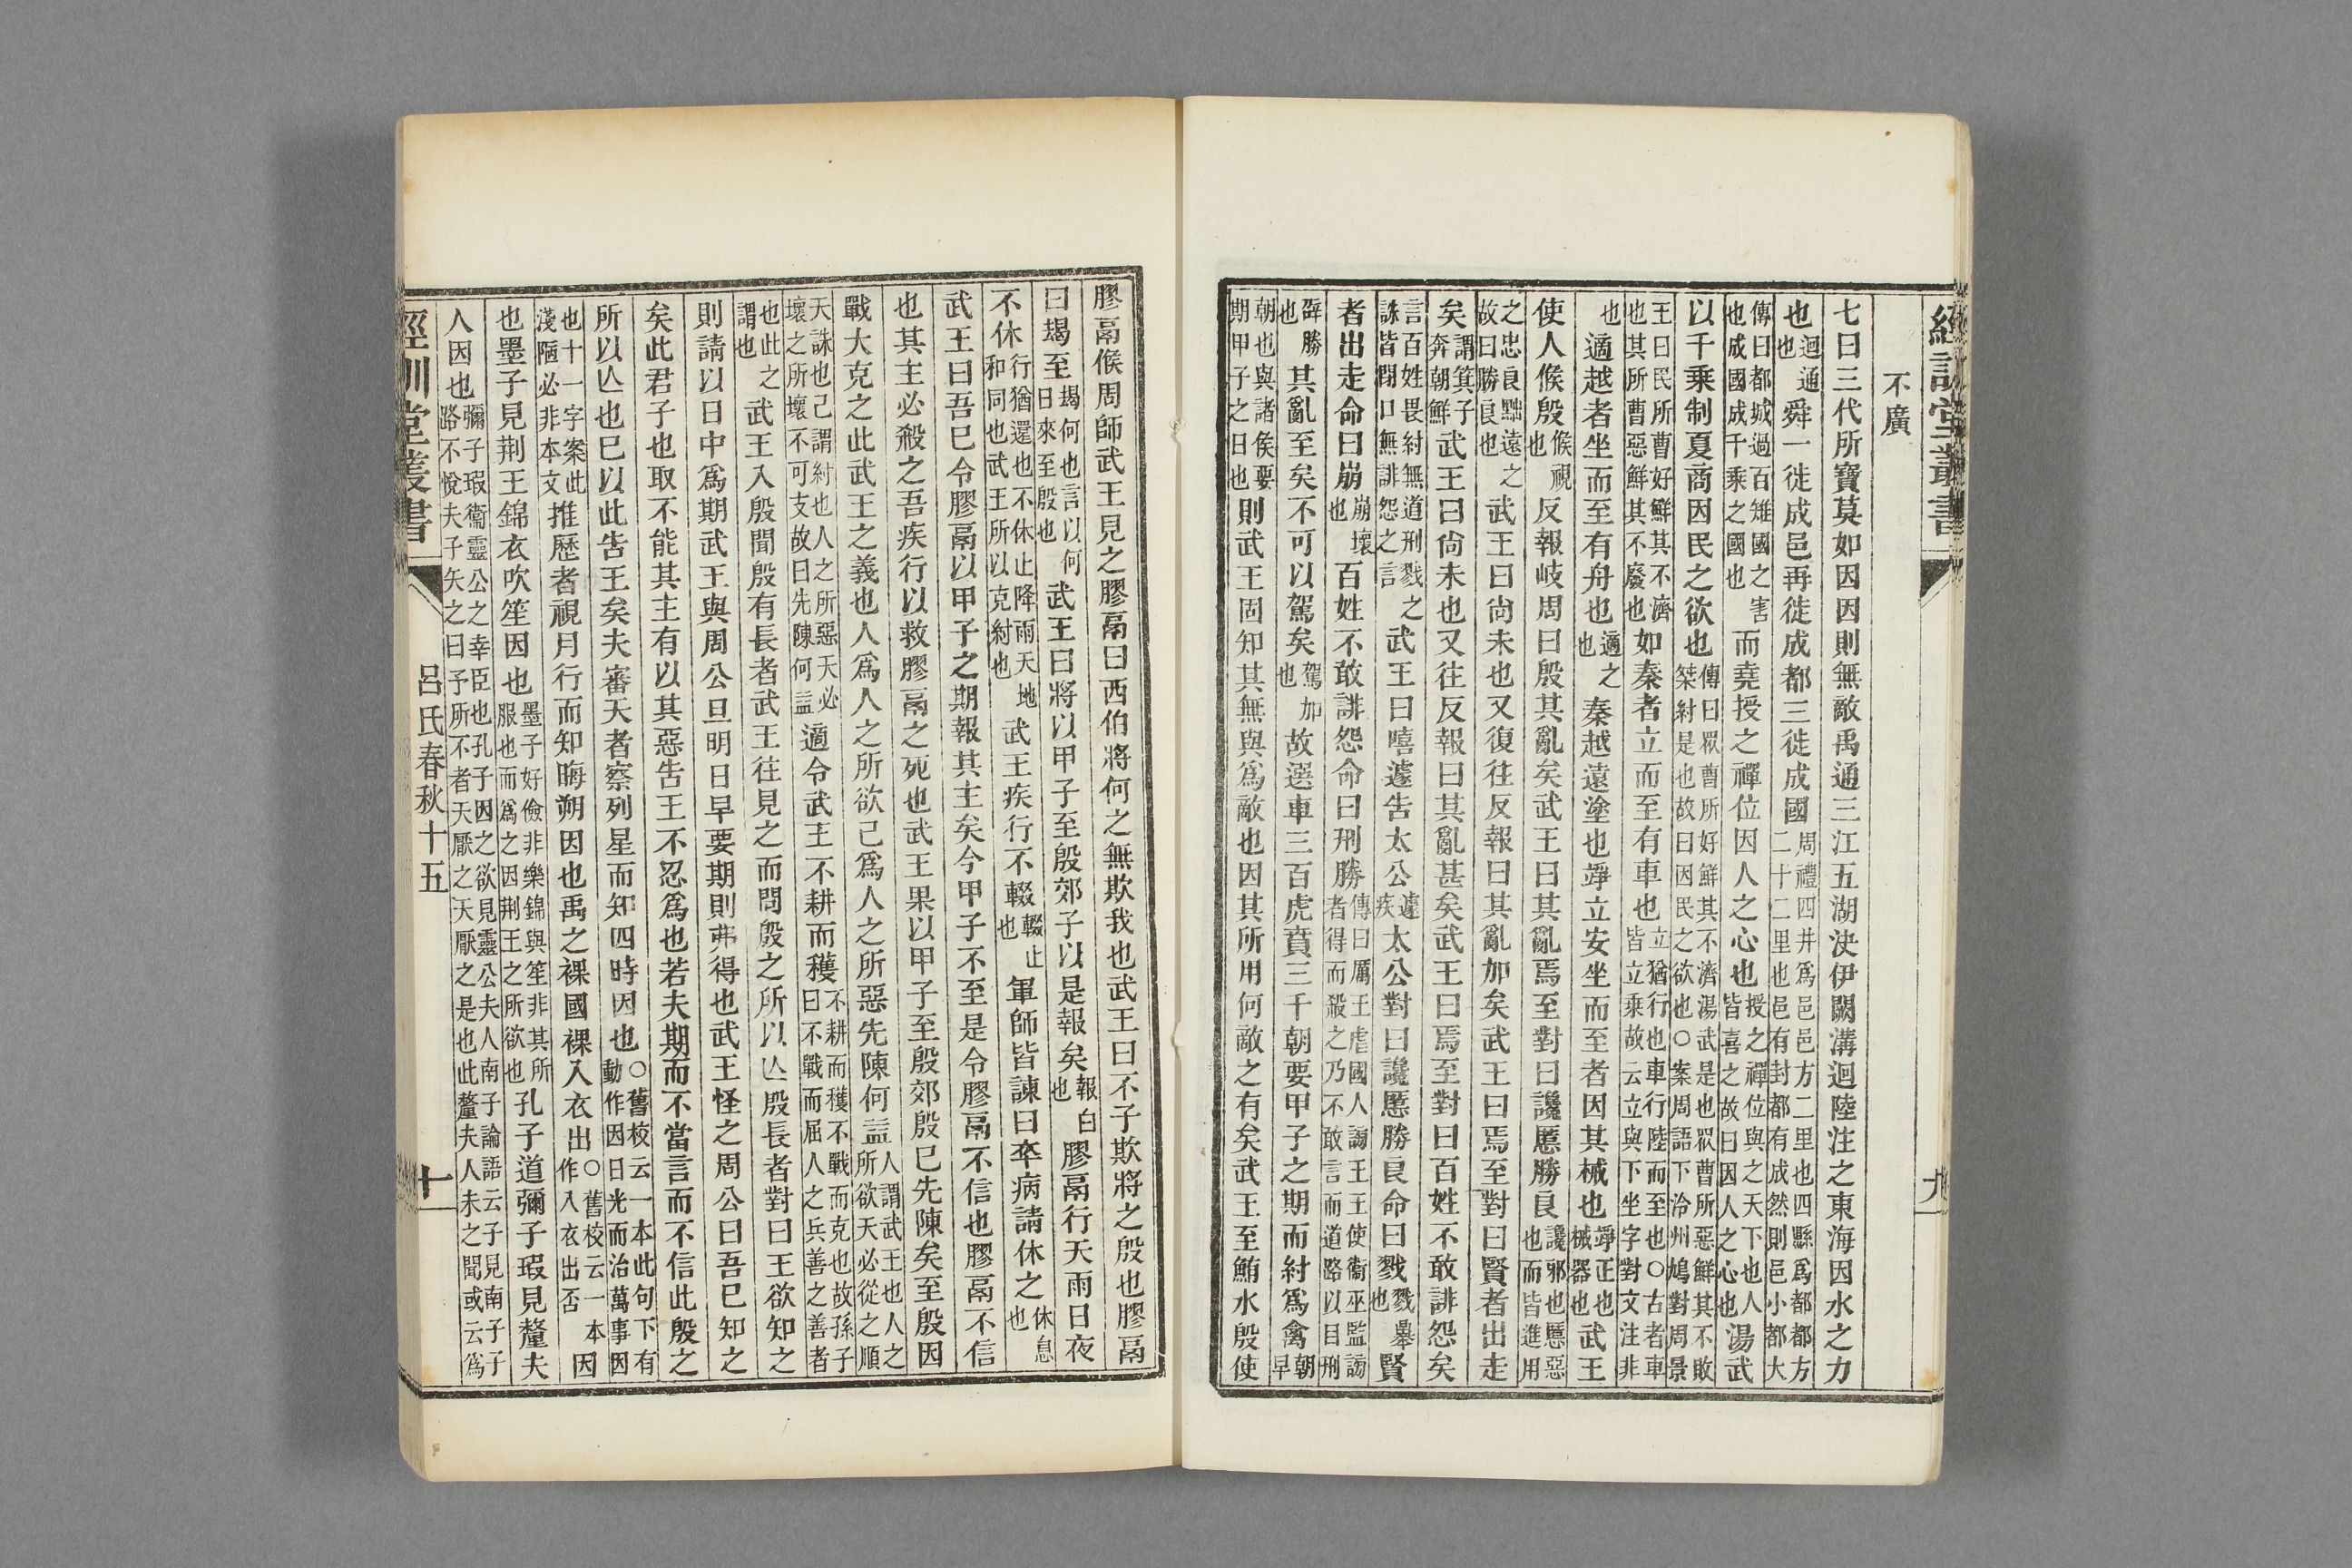 經訓堂叢書 九
不廣
七曰三代所寶莫如因因則無敵禹通三江五湖決伊闕溝迴陸注之東海因水之力
也迴通也舜一徙成邑再徙成都三徙成國周禮四井爲邑邑方二里也四縣爲都都方二十二里也邑有封都有成然則邑小都大
傳曰都城過百雉國之害也成國成千乘之國也而堯授之禪位因人之心也授之禪位與之天下也人皆喜之故曰因人之心也湯武
以千乘制夏商因民之欲也傳曰眾曹所好鮮其不濟湯武是也眾曹所惡鮮其不敗桀紂是也故曰因民之欲也○案周語下泠州鳩對周景
王曰民所曹好鮮其不濟也其所曹惡鮮其不廢也如秦者立而至有車也立猶行也車行陸而至也○古者車皆立乘故云立與下坐字對文注非
也適越者坐而至有舟也適之也秦越遠塗也竫立安坐而至者因其械也竫正也械器也武王
使人候殷候視也反報岐周曰殷其亂矣武王曰其亂焉至對曰讒慝勝良讒邪也慝惡也而皆進用
之忠良黜遠之故曰勝良也武王曰尙未也又復往反報曰其亂加矣武王曰焉至對曰賢者出走
矣謂箕子奔朝鮮武王曰尙未也又往反報曰其亂甚矣武王曰焉至對曰百姓不敢誹怨矣
言百姓畏紂無道刑戮之誅皆閉口無誹怨之言武王曰嘻遽告太公遽疾太公對曰讒慝勝良命曰戮戮暴也賢
者出走命曰崩崩壞也百姓不敢誹怨命曰刑勝傳曰厲王虐國人謗王王使衞巫監謗者得而殺之乃不敢言而道路以目刑
辟勝也其亂至矣不可以駕矣駕加也故選車三百虎賁三千朝要甲子之期而紂爲禽朝早
朝也與諸侯要期甲子之日也則武王固知其無與爲敵也因其所用何敵之有矣武王至鮪水殷使
膠鬲候周師武王見之膠鬲曰西伯將何之無欺我也武王曰不子欺將之殷也膠鬲
曰朅至朅何也言以何日來至殷也武王曰將以甲子至殷郊子以是報矣報白也膠鬲行天雨日夜
不休行猶還也不休止降雨天地和同也武王所以克紂也武王疾行不輟輟止也軍師皆諫曰卒病請休之休息也
武王曰吾已令膠鬲以甲子之期報其主矣今甲子不至是令膠鬲不信也膠鬲不信
也其主必殺之吾疾行以救膠鬲之死也武王果以甲子至殷郊殷已先陳矣至殷因
戰大克之此武王之義也人爲人之所欲己爲人之所惡先陳何益人謂武王也人之所欲天必從之順
天誅也己謂紂也人之所惡天必壞之所壞不可支故曰先陳何益適令武王不耕而穫不耕而穫不戰而克也故孫子曰不戰而屈人之兵善之善者
也此之謂也武王入殷聞殷有長者武王往見之而問殷之所以亾殷長者對曰王欲知之
則請以日中爲期武王與周公旦明日早要期則弗得也武王怪之周公曰吾已知之
矣此君子也取不能其主有以其惡告王不忍爲也若夫期而不當言而不信此殷之
所以亾也已以此告王矣夫審天者察列星而知四時因也○舊校云一本此句下有動作因日光而治萬事因
也十一字案此淺陋必非本文推歷者視月行而知晦朔因也禹之裸國裸入衣出○舊校云一本作入衣出否因
也墨子見荆王錦衣吹笙因也墨子好儉非樂錦與笙非其所服也而爲之因荆王之所欲也孔子道彌子瑕見釐夫
人因也彌子瑕衞靈公之幸臣也孔子因之欲見靈公夫人南子論語云子見南子子路不悅夫子矢之曰予所不者天厭之天厭之是也此釐夫人未之聞或云爲
經訓堂叢書 呂氏春秋十五 十